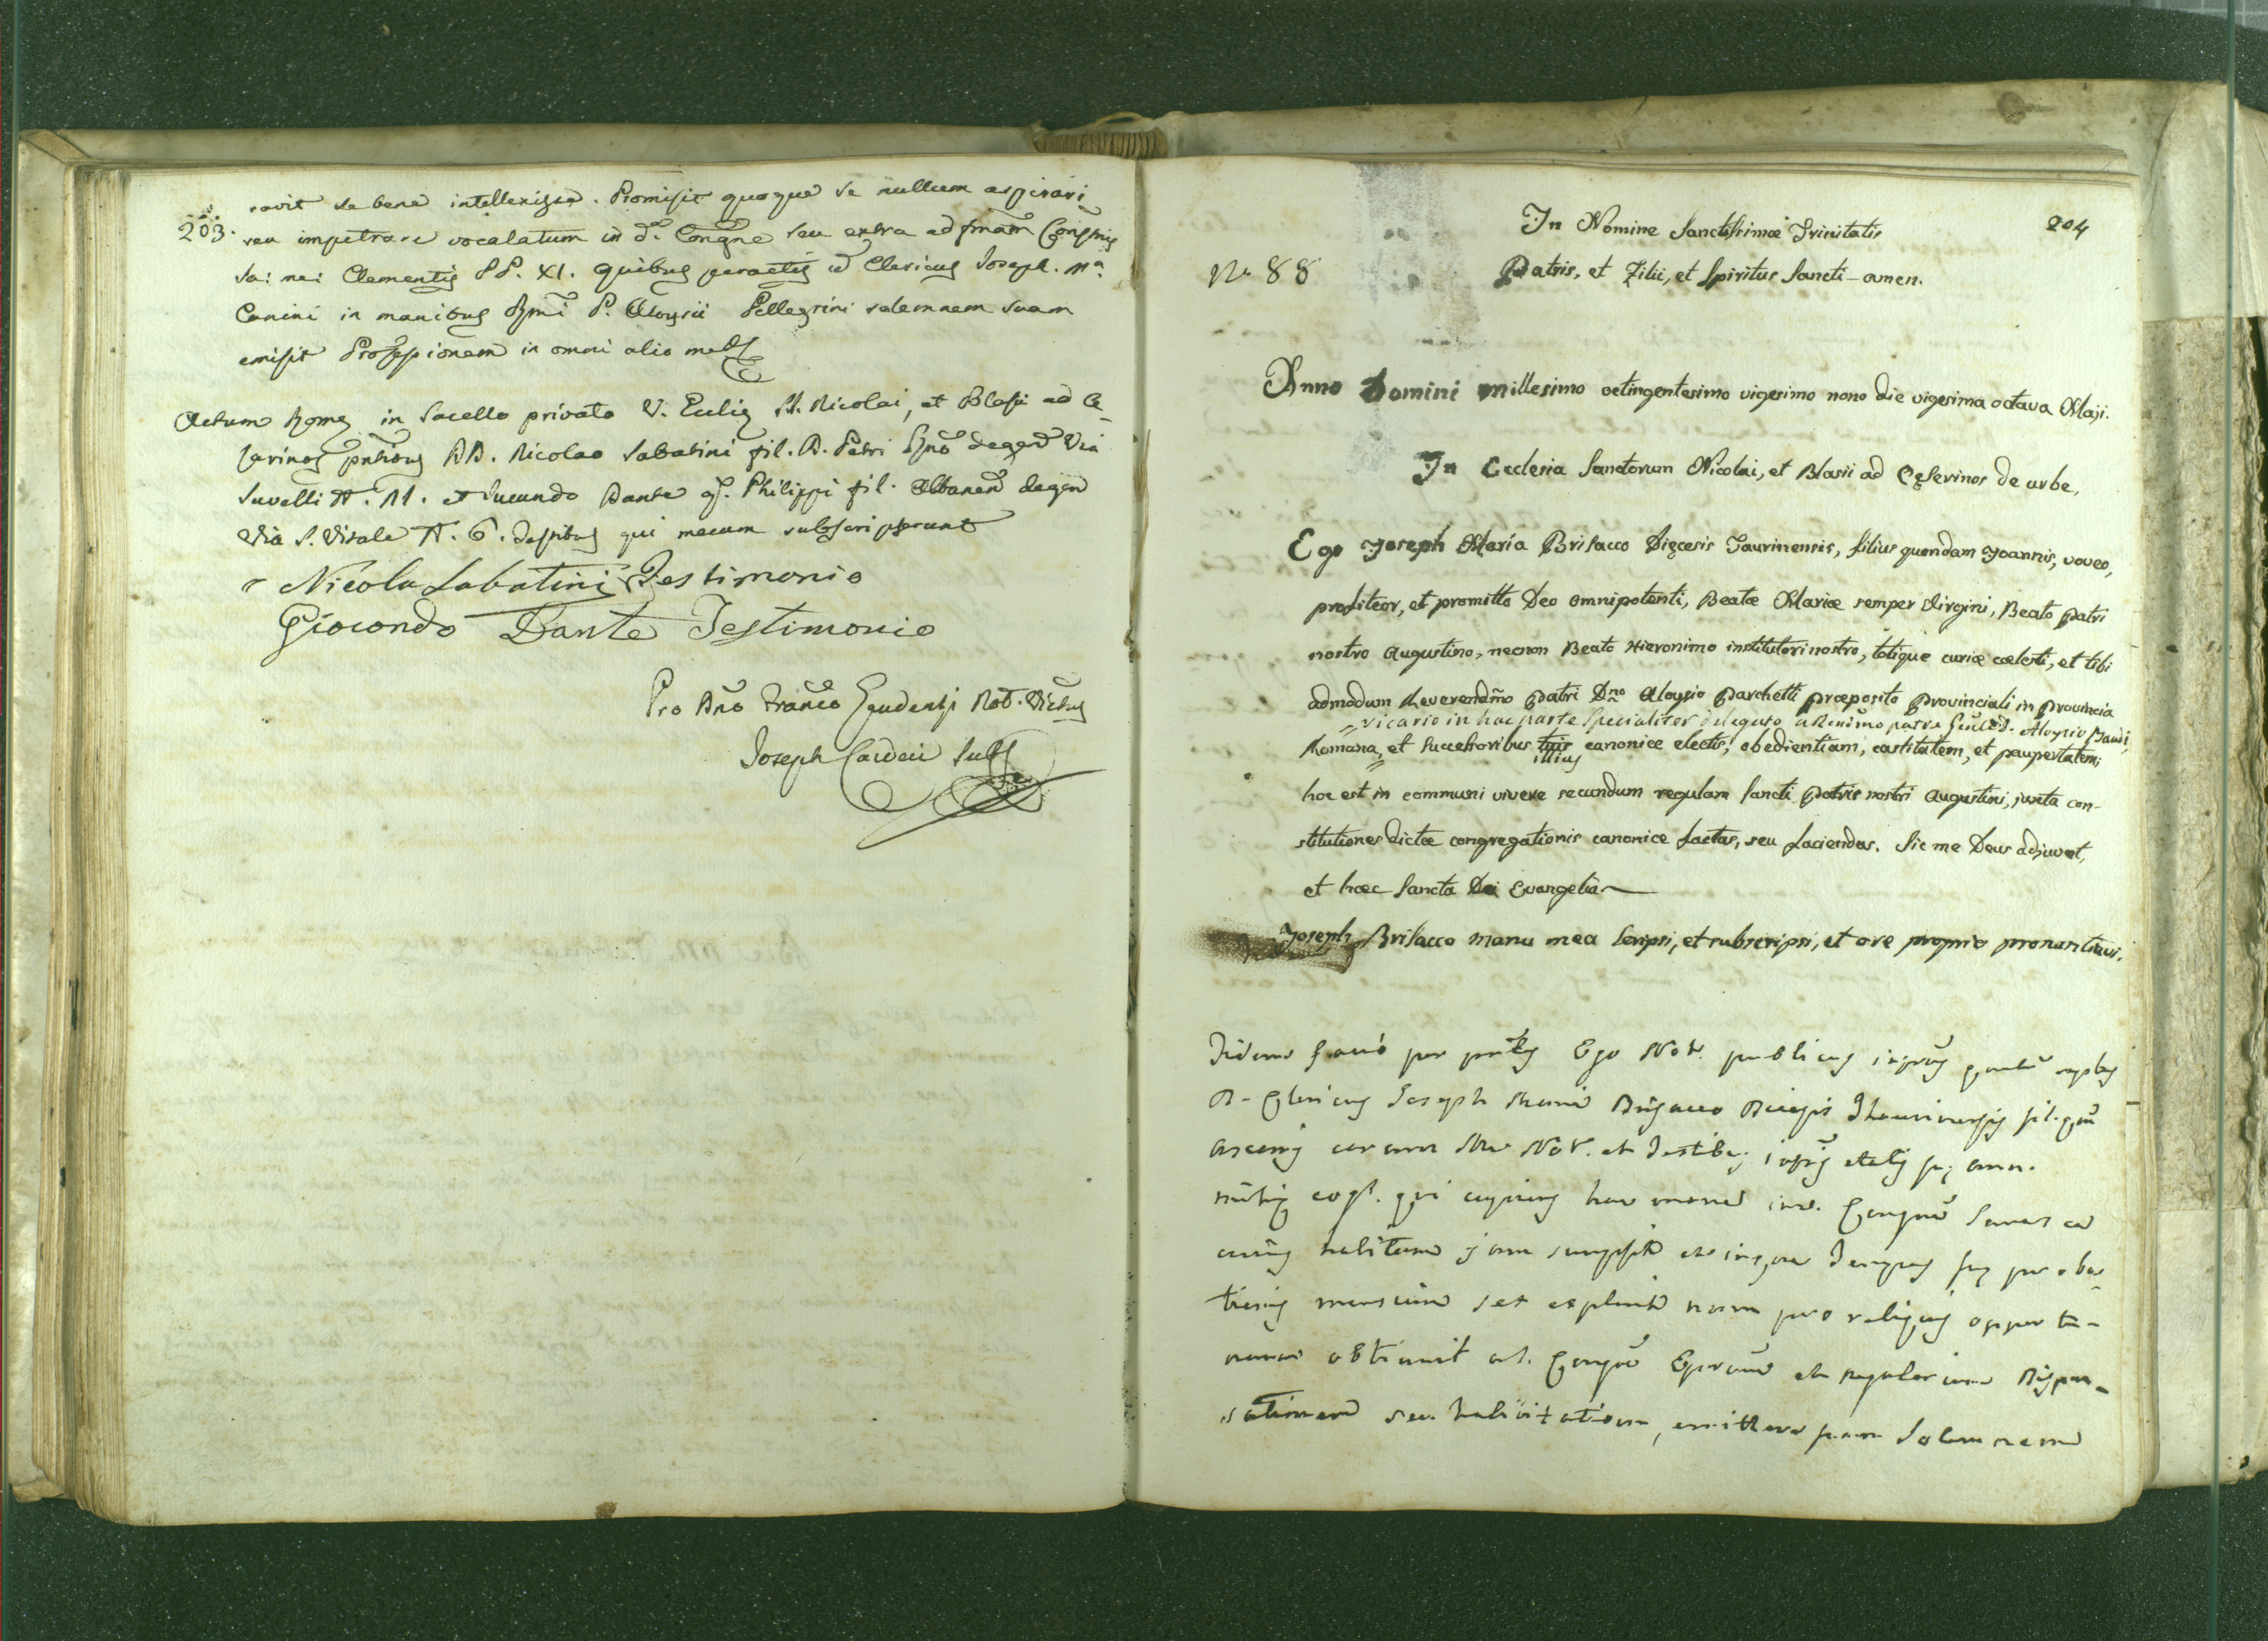 203.
ravit se bene intellexisse. Promisit quoque se nullum aspirari
seu impetrare vocalatum in d.ª Congne seu extra ad fmam Consnis
Sa: me: Clementis PP. XI. quibus peractis id Clericus Joseph. Mª
Canini in manibus Rmi P. Aloysii Pellegrini solemnem suam
emisit Professionem in omni alio meli
Actum Rome in Sacello privato V. Eccliæ SS. Nicolai, et Blasii ad Ce-
sarinos pntibus DD. Nicolao Sabatini fil. D. Petri Rno degen Via
Suvelli N. 11. et Jucundo Dante q. Philippi fil. Albanen degen
Via S. Vitale N. 6. Testibus qui mecum subscripserunt
Nicola Sabatini Testimonio
Giocondo Dante Testimonio
Pro Dno Franco Gaudenzi Not. Victus
Joseph Cardeii Subs
204
In Nomine Sanctissimæ Trinitatis
Nº 88
Patris, et Filii, et Spiritus Sancti-amen.
Anno Domini millesimo octingentesimo vigesimo nono die vigesima octava Maji.
In Ecclesia Sanctorum Nicolai, et Blasii ad Cęserinos de urbe,
Ego Joseph Maria Brisacco Dięcesis Taurinensis, filius quondam Joannis, voveo,
profiteor, et promitto Deo omnipotenti, Beatæ Mariæ semper Virgini, Beato Patri
nostro Augustino, necnon Beato Hieronimo institutori nostro, totique curiæ cœlesti, et tibi
admodum Reverendmo Patri Dno Aloysio Parchetti Præposito Provinciali in Provincia
vicario in hac parte specialiter delegato a Renmo patre D. Aloysio Baudi
Romana, et Successoribus tuis canonice electis, obedientiam, castitatem, et paupertatem;
illius
hoc est in communi vivere secundum regulam Sancti Patris nostri Augustini, juxta con-
stitutiones dictæ congregationis canonice factas, seu faciendas. Sic me Deus adjuvet,
et hæc Sancta Dei Evangelia
Joseph Brisacco manu mea scripsi, et subscripsi, et ore proprio pronuntiavi.
Fidem facio per pntes Ego Not. publicus
D. Clericus Joseph Maria Brisacco Diecesis Thaurinensis fil. qm
coram Me Not. et Testibus
cogl. qui cupiens hac
habitum jam sumpsit et Tempus sue proba-
tionis mensium sex explevit nam pro reliquis opportu-
nam obtinuit a S. Congne Eporum et Regularium Dispen-
sationem seu habilitationem, emittere suam Solemnem